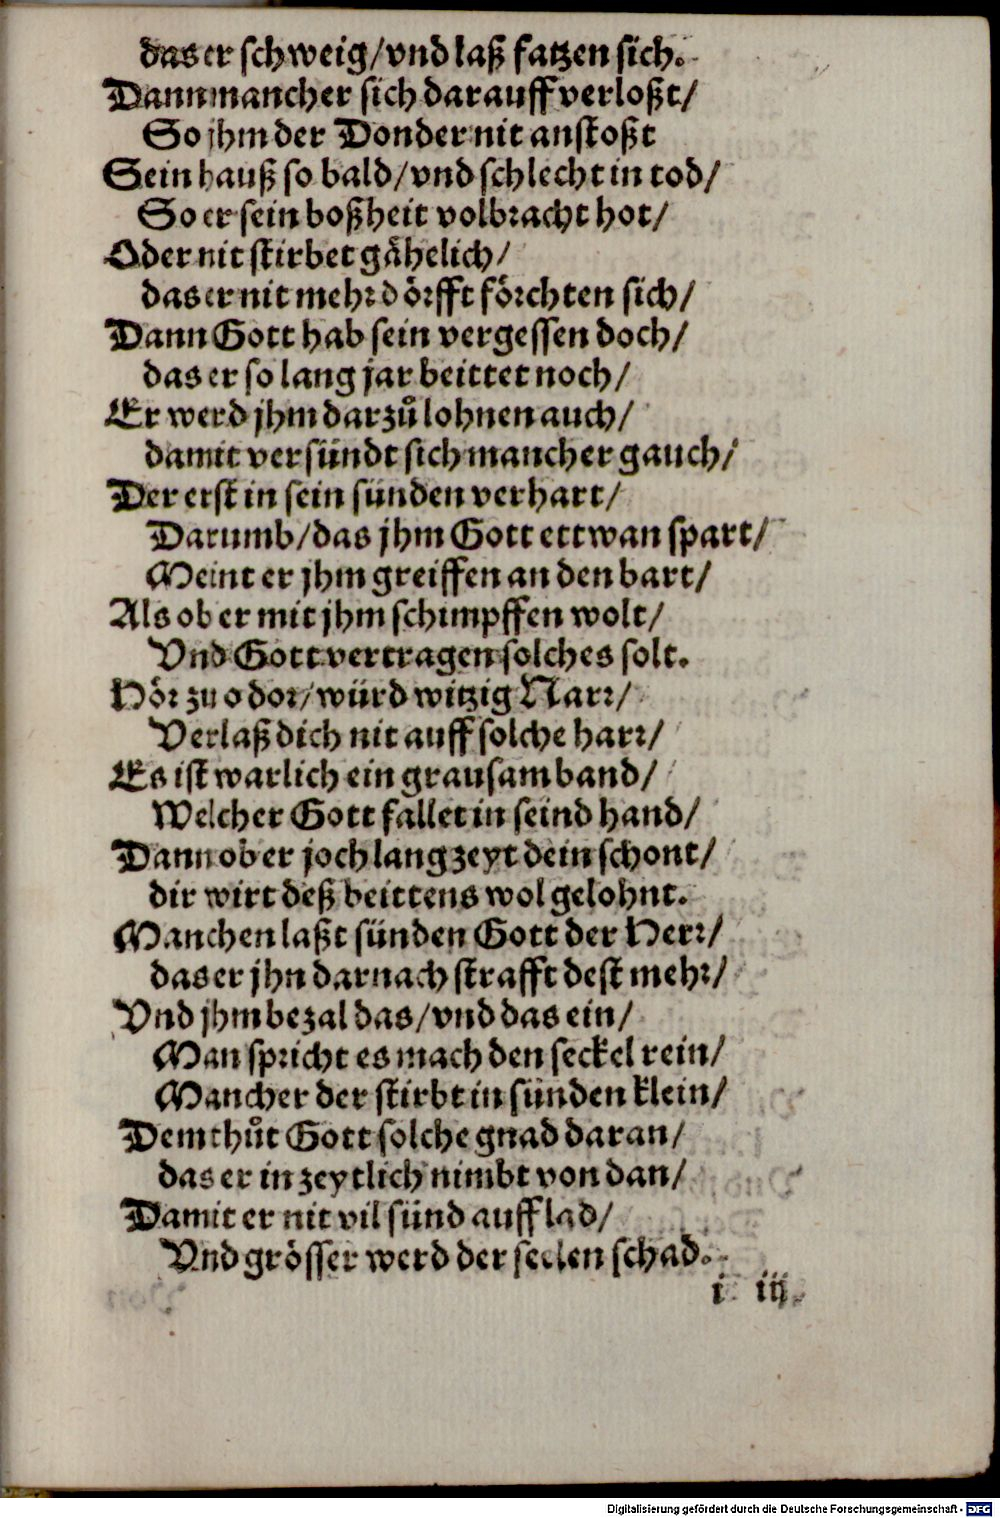 das er schweig/vnd laß fatzen sich.
Dann mancher sich darauff verloßt/
So jhm der Donder nit anstoßt
Sein hauß so bald/vnd schlecht in tod/
So er sein boßheit volbracht hot/
Oder nit stirbet gåhelich/
das er nit mehr dörfft förchten sich/
Dann Gott hab sein vergessen doch/
das er so lang jar beittet noch/
Er werd jhm darzů lohnen auch/
damit versündt sich mancher gauch/
Der erst in sein sünden verhart/
Darumb/das jhm Gott ettwan spart/
Meint er jhm greiffen an den bart/
Als ob er mit jhm schimpffen wolt/
Vnd Gott vertragen solches solt.
Hör zu o dor/würd witzig Narr/
Verlaß dich nit auff solche harr/
Es ist warlich ein grausam band/
Welcher Gott fallet in seind hand/
Dann ob er joch lang zeyt dein schont/
dir wirt deß beittens wol gelohnt.
Manchen laßt sünden Gott der Herr/
das er jhn darnach strafft dest mehr/
Vnd jhm bezal das/vnd das ein/
Man spricht es mach den seckel rein/
Mancher der stirbt in sünden klein/
Dem thůt Gott solche gnad daran/
das er in zeytlich nimbt von dan/
Damit er nit vil sünd auff lad/
Vnd grösser werd der seelen schad.
i iij
Digitalisierung gefördert durch die Deutsche Forschungsgemeinschaft - DFG